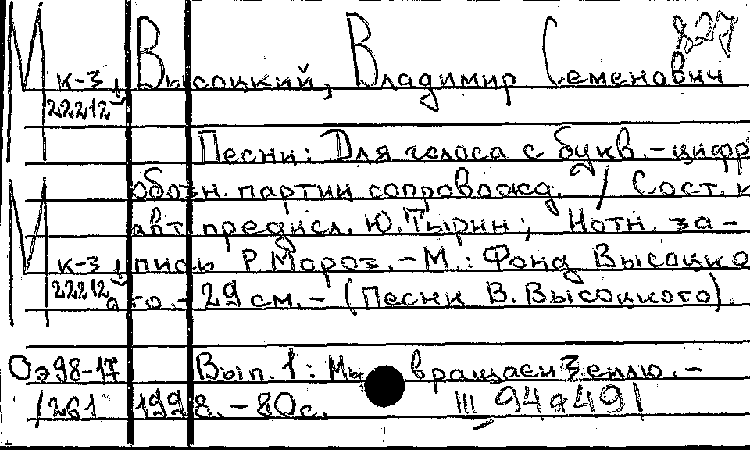 827
М к-3 Высоцкий, Владимир Семенович
22212
Песни: Для голоса с букв.-цифр
обозн. партии сопровожд. / Сост. и
авт предисл. Ю.Тырин; Нотн. за-
М к-3 пись Р.Мороз. - М.: Фонд Высоцко
22212 го. - 29 см. - (Песни В.Высоцкого).
Оэ98-17 Вып. 1: Мы вращаем Землю. -
/261 1998. - 80с. III 94 491